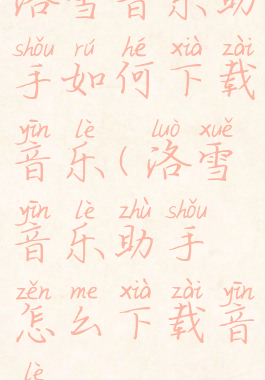 洛雪音乐助
shǒu rú hé xià zài
手如何下载
yīn lè luò xuě
音乐(洛雪
yīn lè zhù shǒu
音乐助手
zěn me xià zài yīn
怎么下载音
lè